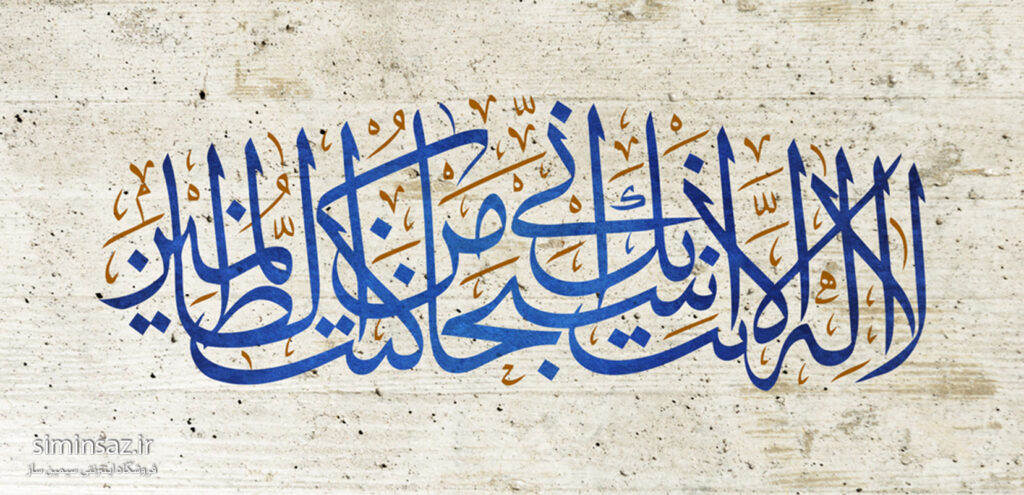 لا اله الا انت سبحانك اني كنت من الظالمين
siminsaz.ir
فروشگاه اینترنتی سیمین ساز